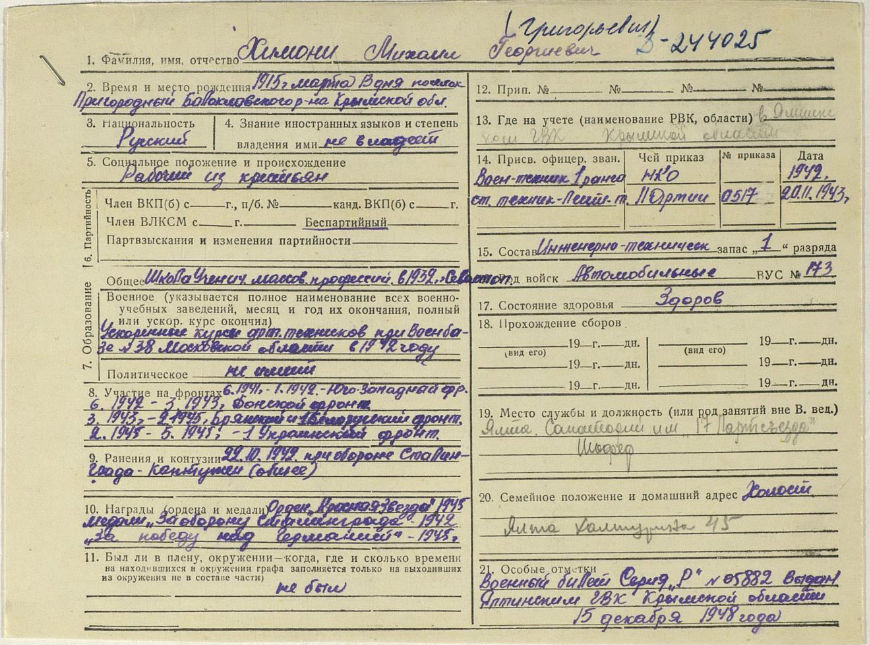 (Григорьевич)
З-244025
1. Фамилия, имя, отчество Химони Михаил Георгиевич
2. Время и место рождения 1915 г. марта 8 дня поселок
Пригородный Балаклавского р-на Крымской обл.
3. Национальность Русский
4. Знание иностранных языков и степень
владения ими не владеет
5. Социальное положение и происхождение
Рабочий из крестьян
6. Партийность
Член ВКП(б) с г., п/б. № канд. ВКП(б) с г.
Член ВЛКСМ с г. Беспартийный
Партвзыскания и изменения партийности
7. Образование
Общее Школа Ученич. массов. профессий в 1932 г.
Военное (указывается полное наименование всех военно-
учебных заведений, месяц и год их окончания, полный
или ускор. курс окончил)
Ускоренные курсы арт. техников при Военба-
зе № 38 Московской области в 1942 году
Политическое не имеет
8. Участие на фронтах 6.1941 - 1.1942 - Юго-Западный фр.
6. 1942 - 3. 1943, Донской фронт.
3. 1943, - 2. 1945, Брянский и 1 Белорусский фронт.
2. 1945 - 5. 1945, - 1 Украинский фронт.
9. Ранения и контузии 22.10.1942 при обороне Сталин-
града - Контужен (общее)
10. Награды (ордена и медали) Орден „Красная Звезда" 1945
медали „За оборону Сталинграда - 1942
„За победу над Германией" - 1945 г.
11. Был ли в плену, окружении—когда, где и сколько времени
на находившихся в окружении графа заполняется только на выходивших
из окружения не в составе части)
не был
12. Прип. № № № №
13. Где на учете (наименование РВК, области) в Ялтинс
ком ГВК Крымской области
14. Присв. офицер. зван. Чей приказ № приказа Дата
Воен-техник 1 ранга НКО 1942.
ст. техник-Лейт-т. 11 Армии 0517 20.11.1943,
15. Состав Инженерно-техническ запас „1" разряда
Род войск Автомобильные ВУС № 173
17. Состояние здоровья Здоров
18. Прохождение сборов
19 г. дн. 19 г. дн.
(вид его) (вид его)
19 г. дн. 19 г. дн.
19 г. дн. 19 г. дн.
19. Место службы и должность (или род занятий вне В. вед.)
Ялта. Санаторий им „17 Партсъезда"
Шофер
20. Семейное положение и домашний адрес Холост
Ялта Халтурина 45
21. Особые отметки
Военный билет Серия „Р" № 05882 Выдан
Ялтинским ГВК Крымской области
15 декабря 1948 года